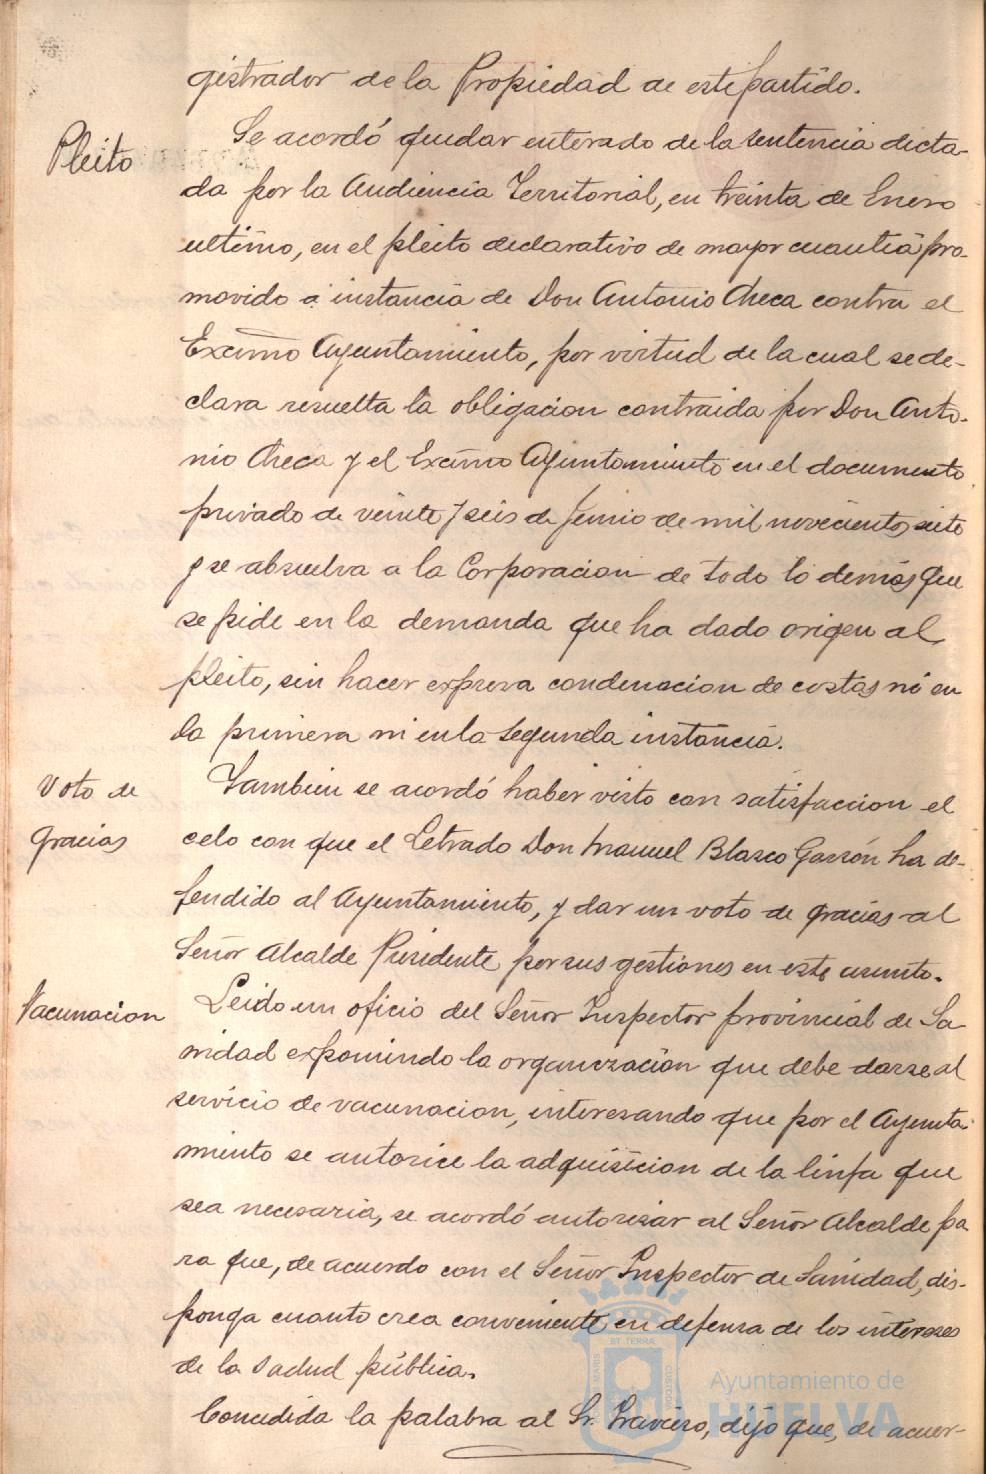 gistrador de la Propiedad de este partido.
Pleito
Se acordó quedar enterado de la sentencia dicta-
da por la Audiencia Territorial, en treinta de Enero
ultimo, en el pleito declarativo de mayor cuantia pro-
movido a instancia de Don Antonio Checa contra el
Excmo Ayuntamiento, por virtud de la cual se de-
clara resuelta la obligacion contraida por Don Anto-
nio Checa y el Excmo Ayuntamiento en el documento
privado de veinte y seis de Junio de mil novecientos siete
y se absuelva a la Corporacion de todo lo demás que
se pide en la demanda que ha dado origen al
pleito, sin hacer expresa condenacion de costas ni en
la primera ni en la segunda instancia.
Voto de
gracias
Tambien se acordó haber visto con satisfaccion el
celo con que el Letrado Don Manuel Blasco Garzón ha de-
fendido al Ayuntamiento, y dar un voto de gracias al
Señor Alcalde Presidente por sus gestiones en este asunto.
Vacunacion
Leido un oficio del Señor Inspector provincial de Sa
nidad exponiendo la organizacion que debe darse al
servicio de vacunacion, interesando que por el Ayunta-
miento se autorice la adquisicion de la linfa que
sea necesaria, se acordó autorizar al Señor Alcalde pa
ra que, de acuerdo con el Señor Inspector de Sanidad, dis-
ponga cuanto crea conveniente en defensa de los intereses
de la salud pública.
Concedida la palabra al Sr. Traviero, dijo que, de acuer-
Ayuntamiento de
HUELVA